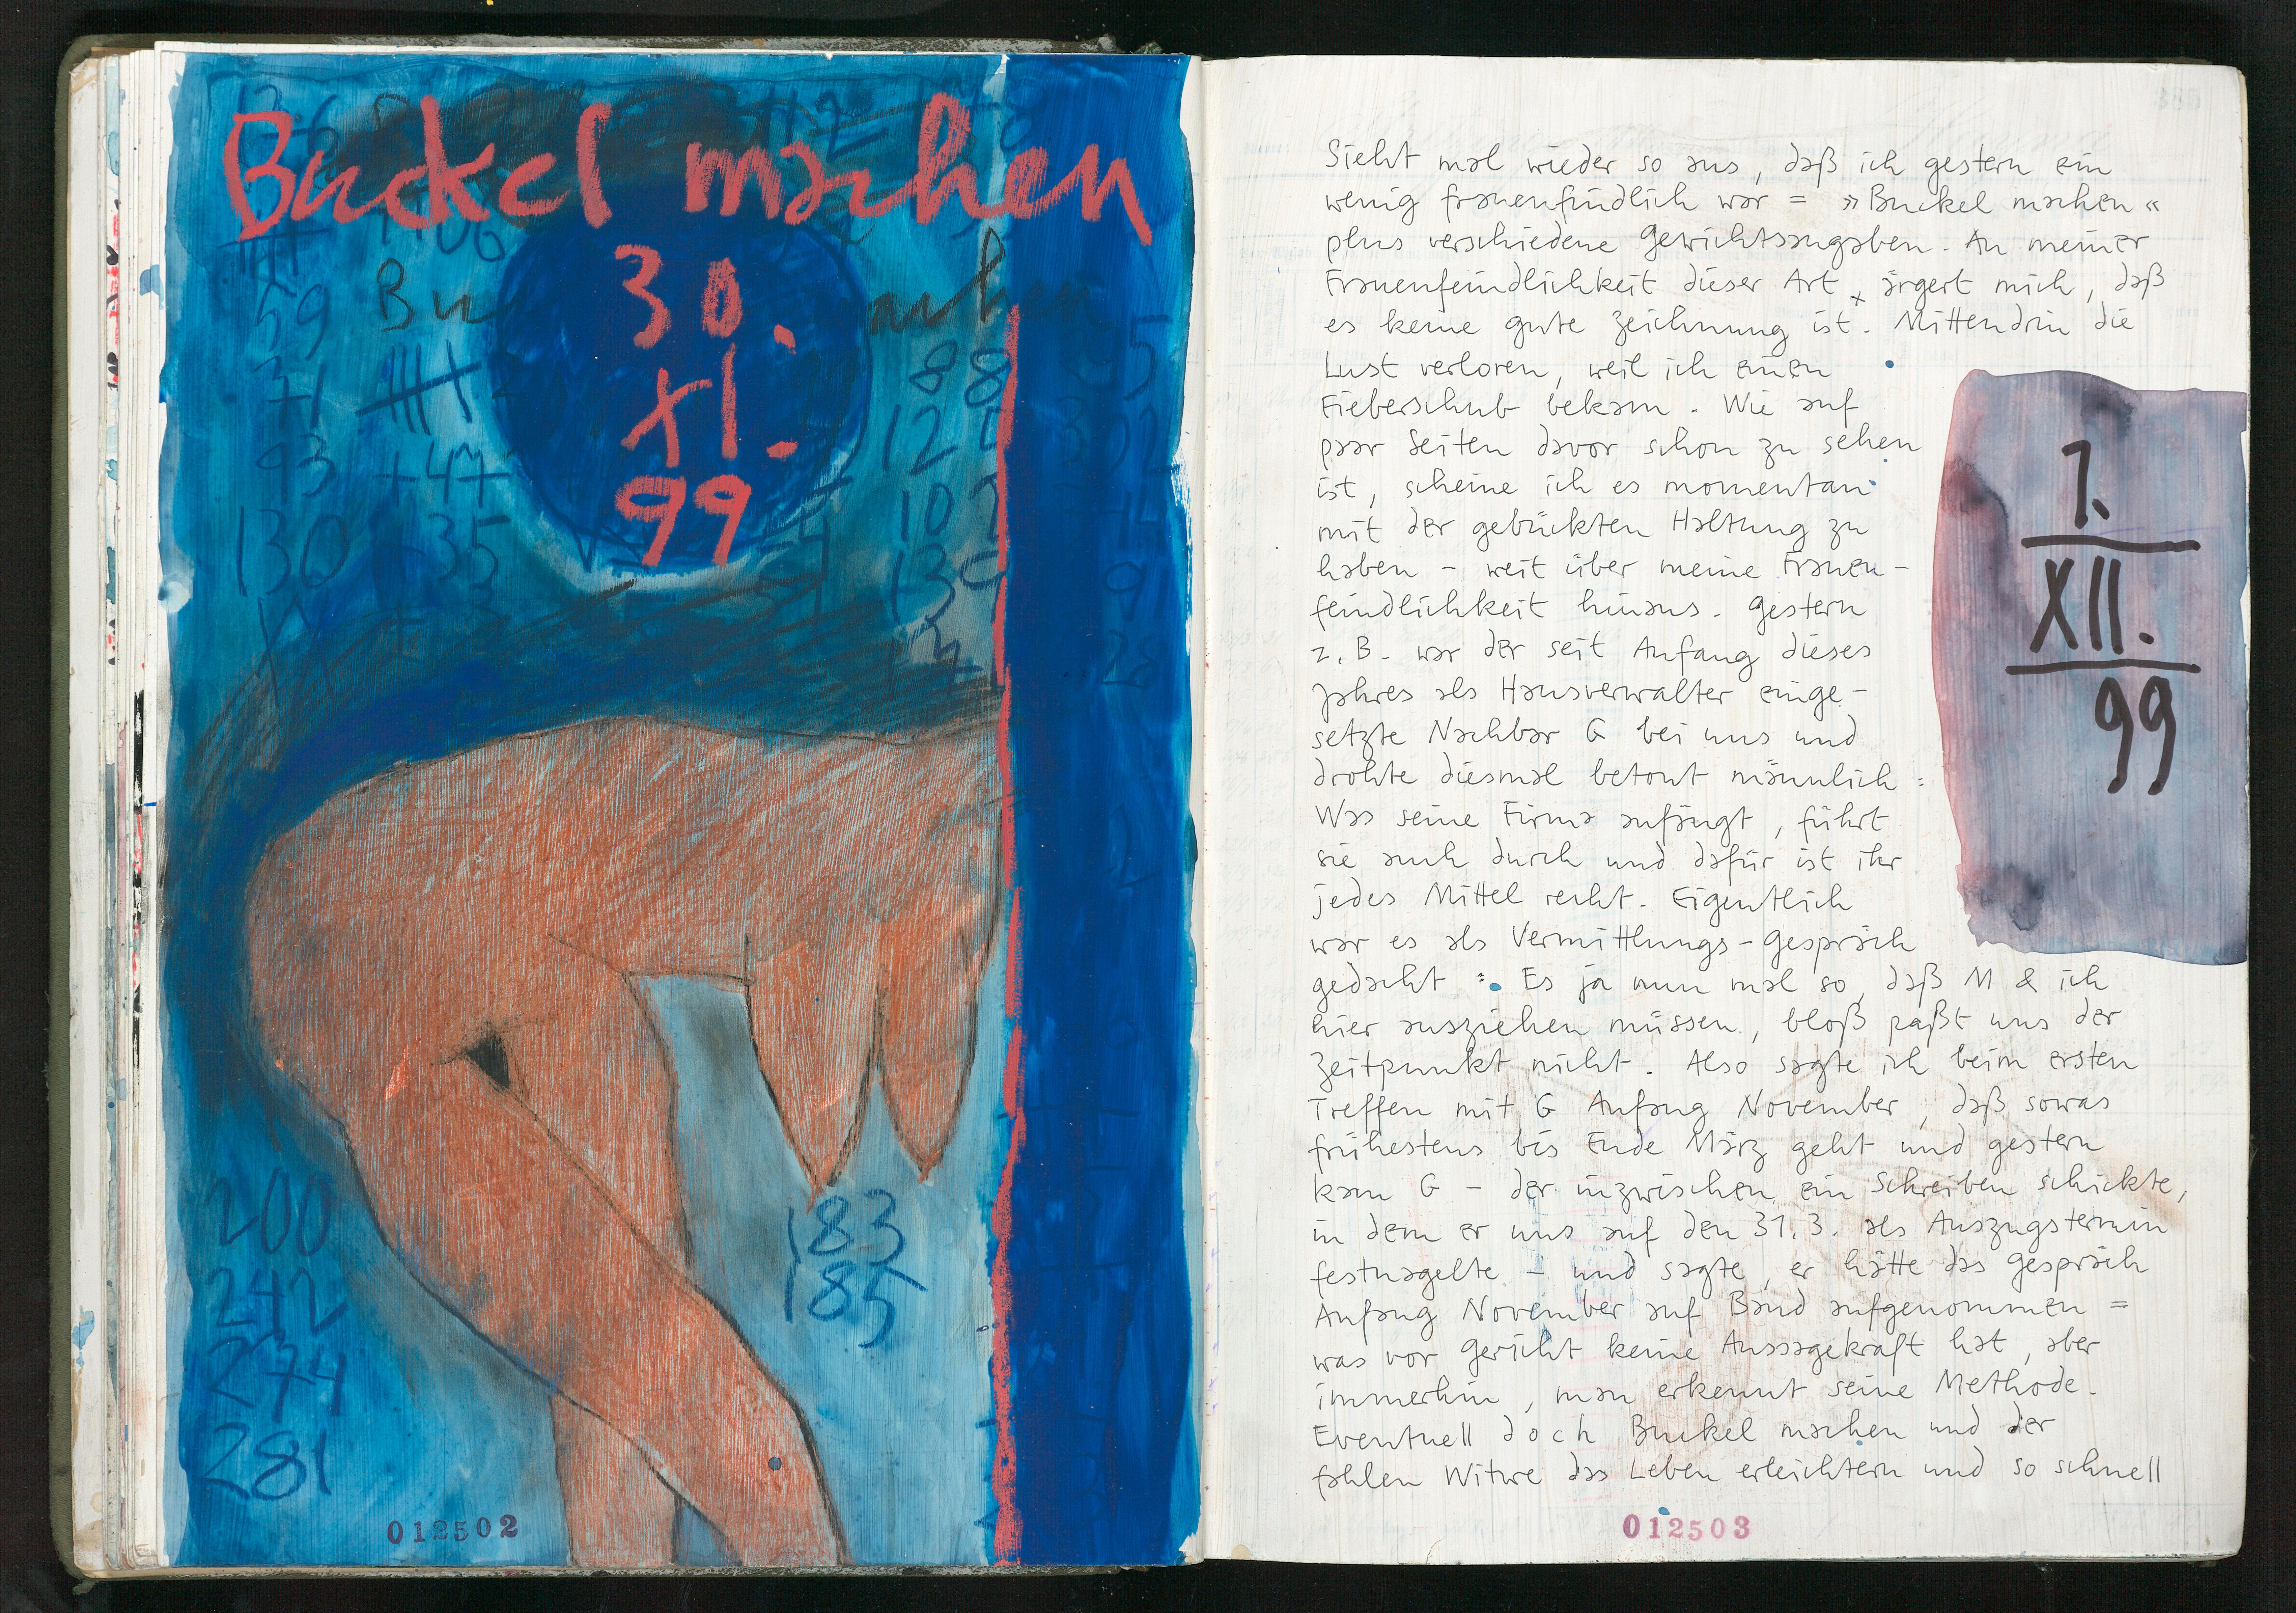 Buckel machen
30.
XI.
99
59
71
93 +47
130 +35
88
200
242
274
281
183
185
012502
Sieht mal wieder so aus, daß ich gestern ein
wenig frauenfindlich war = »Buckel machen«
plus verschiedene Gewichtsangaben. An meiner
Frauenfeindlichkeit dieser Art x ärgert mich, daß
es keine gute Zeichnung ist. Mittendrin die
Lust verloren, weil ich einen
Fieberschub bekam. Wie auf
paar Seiten davor schon zu sehen
ist, scheine ich es momentan
mit der gebückten Haltung zu
haben - weit über meine Frauen-
feindlichkeit hinaus. Gestern
z.B. war der seit Anfang dieses
Jahres als Hausverwalter einge-
setzte Nachbar G bei uns und
drohte diesmal betont männlich:
Was seine Firma anfängt, führt
sie auch durch und dafür ist ihr
jedes Mittel recht. Eigentlich
war es als Vermittlungs-Gespräch
gedacht: Es ja nun mal so, daß M & ich
hier ausziehen müssen, bloß paßt uns der
Zeitpunkt nicht. Also sagte ich beim ersten
Treffen mit G Anfang November, daß sowas
frühestens bis Ende März geht und gestern
kam G - der inzwischen ein Schreiben schickte,
in dem er uns auf den 31.3. als Auszugstermin
festnagelte - und sagte, er hätte das Gespräch
Anfang November auf Band aufgenommen =
was vor Gericht keine Aussagekraft hat, aber
immerhin, man erkennt seine Methode.
Eventuell doch Buckel machen und der
fahlen Witwe das Leben erleichtern und so schnell
1.
XII.
99
012503